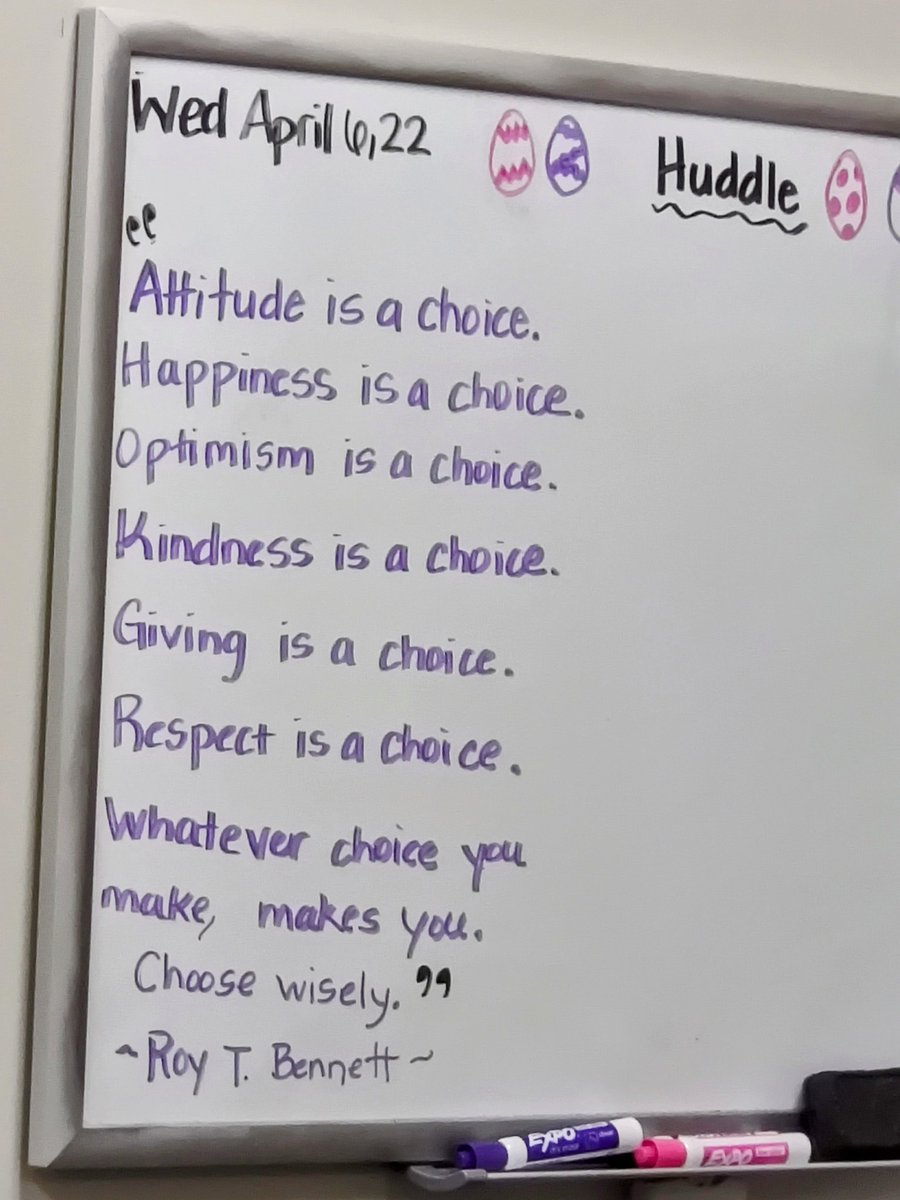 Wed April 6,22
Huddle
“
Attitude is a choice.
Happiness is a choice.
Optimism is a choice.
Kindness is a choice.
Giving is a choice.
Respect is a choice.
Whatever choice you
make, makes you.
Choose wisely.”
~Roy T. Bennett~
EXPO
EXPO